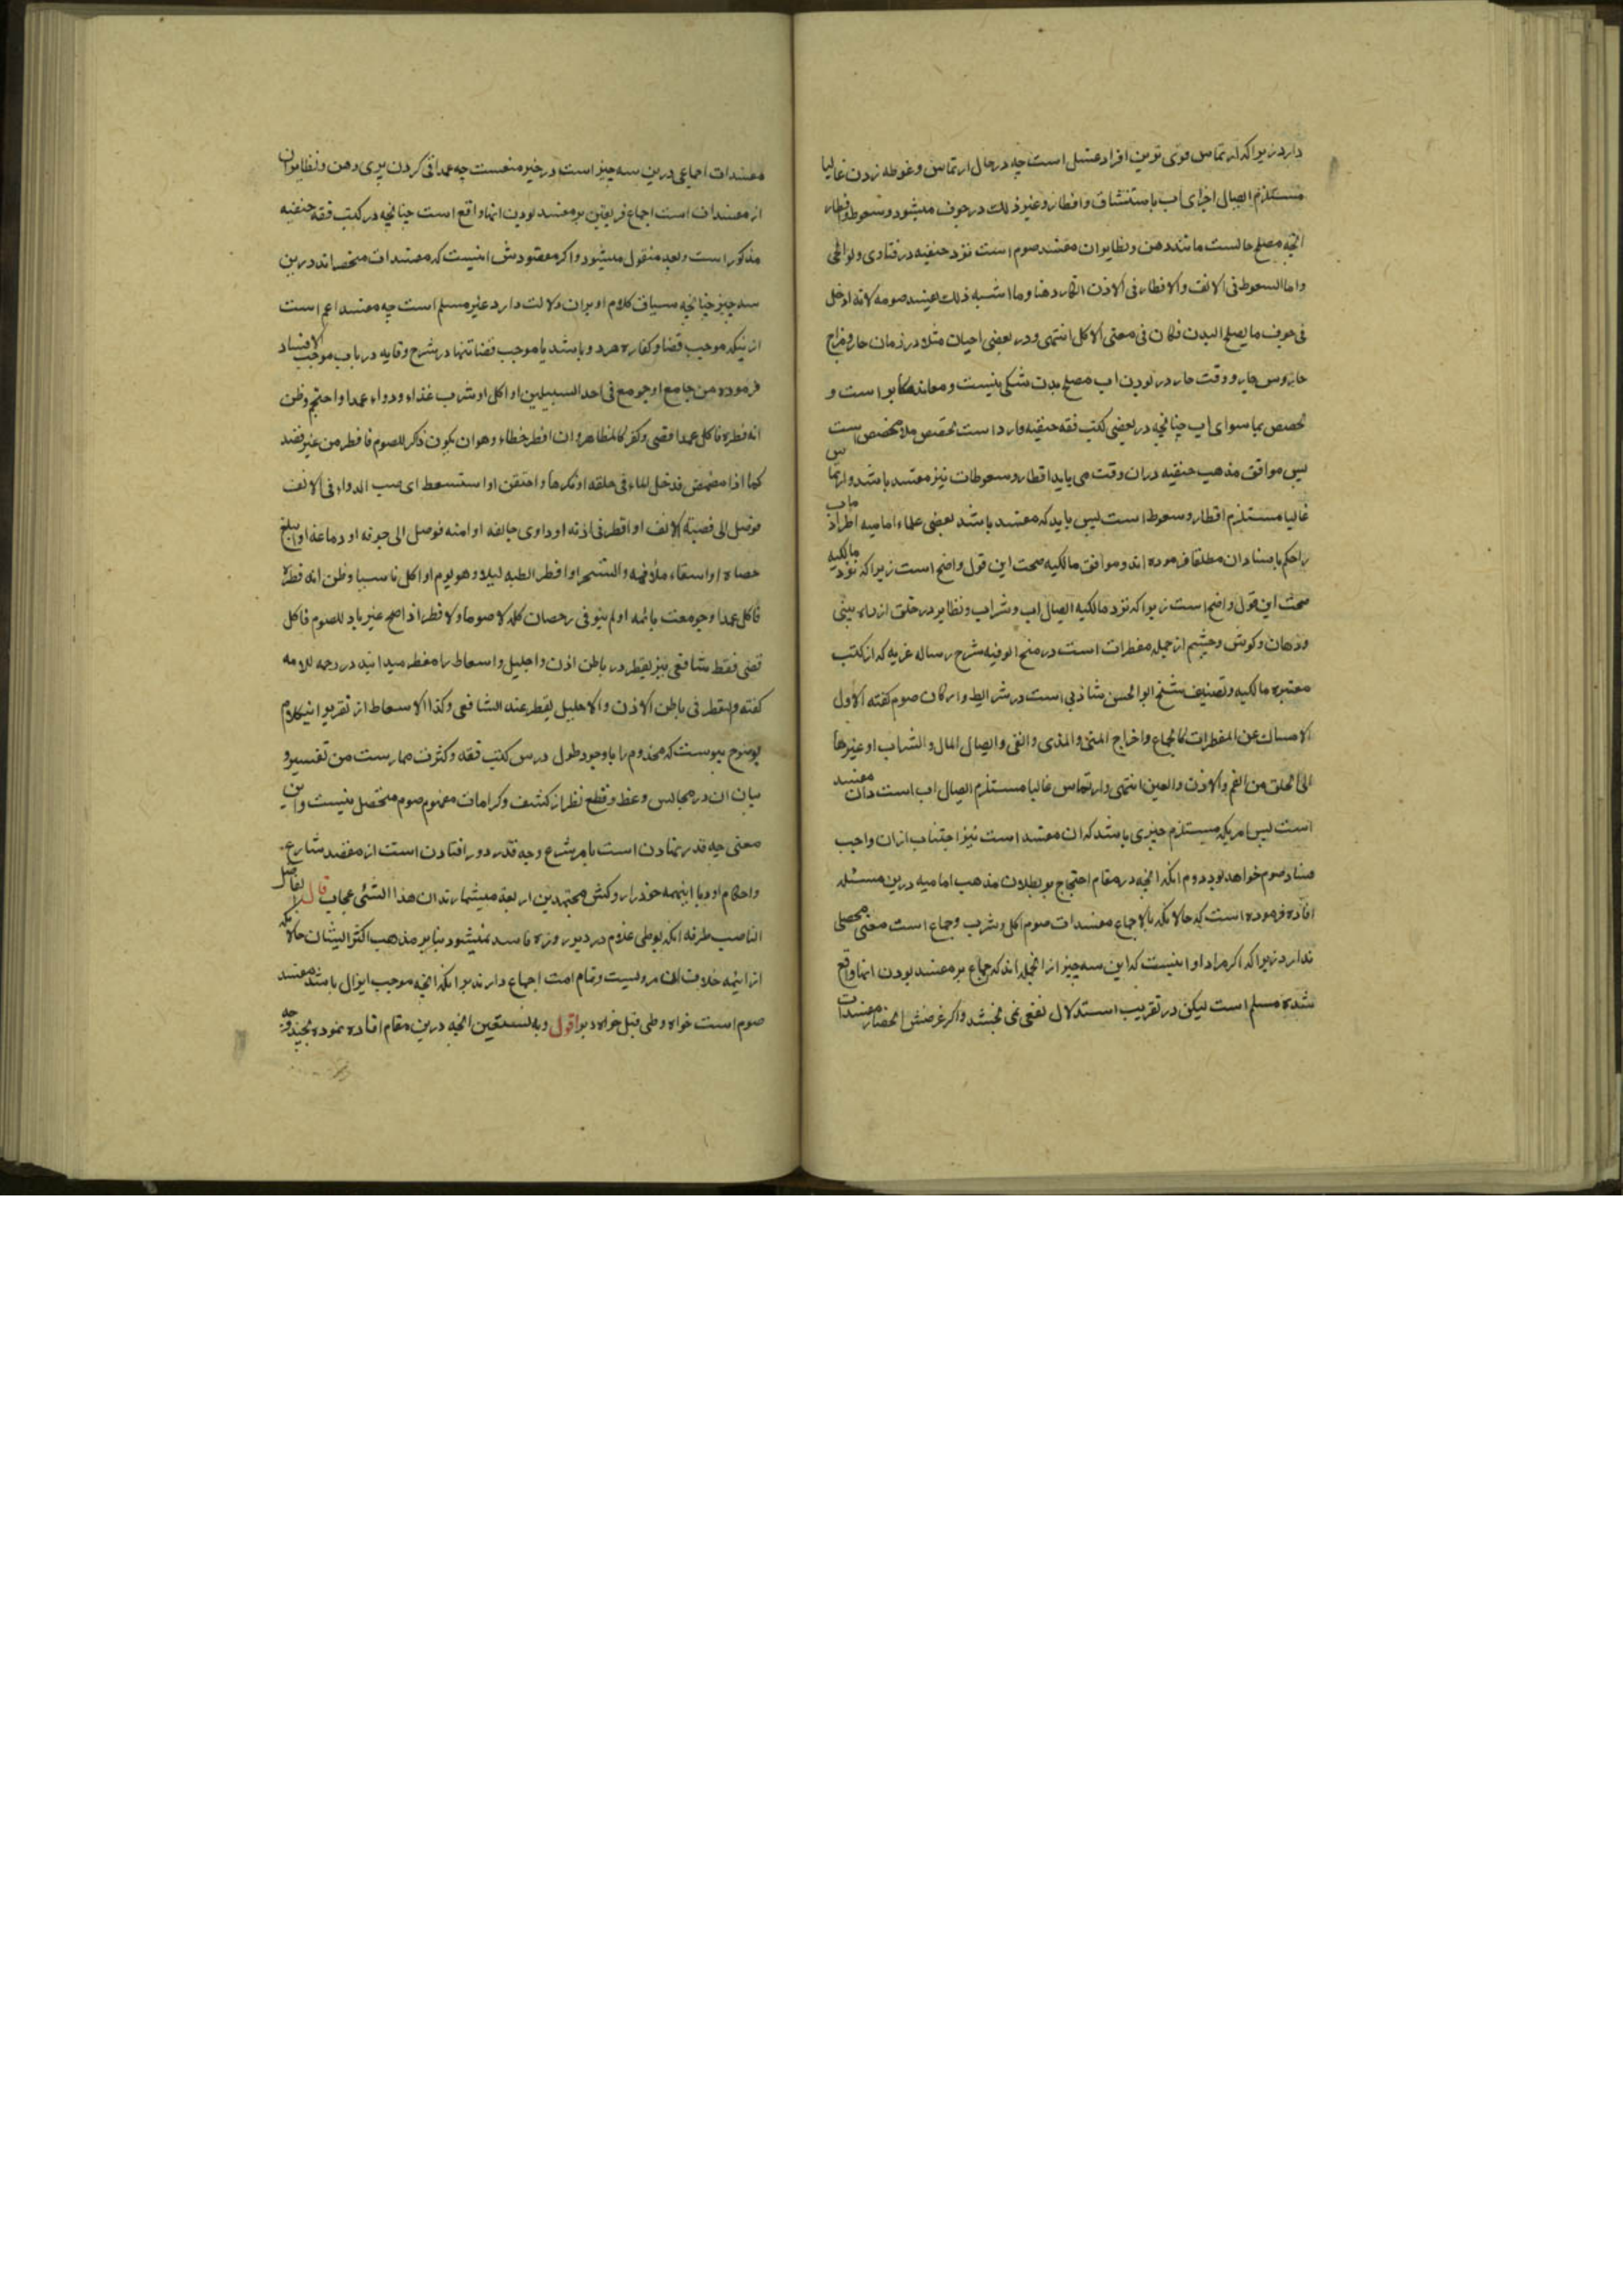 دارد زیرا که ارتماس قوی ترین افراد غسل است چه در حال ارتماس و غوطه زدن غالبا
مستلزم ایصال اجزای آب باستنشاق واقطار وغیر ذلک در جوف میشود وسعوط واقطار
انچه مصلح حالست مانند دهن ونظایر ان مفسد صوم است نزد حنفیه در فتاوی ولوالجی
واما السعوط فی الانف والاقطار فی الاذن الکاردهنا وما اشبه ذلک یفسد صومه لانه ادخل
فی جوف ما یصلح البدن فکان فی معنی الاکل انتهی ودر بعضی احیان مثلا در زمان حار ومزاج
حار وسن حار ووقت حار در بودن اب مصلح بدن شکی نیست ومعاند مکابر است و
تخصص بماسوای اب چنانچه در بعضی کتب فقه حنفیه وارد است تخصیص بلا مخصص است
پس موافق مذهب حنفیه دران وقت می باید اقطار وسعوطات نیز مفسد باشد وارتماس
غالبا مستلزم اقطار وسعوط است پس باید که مفسد باشد بعضی علماء امامیه
را حکم بافساد ان مطلقا فرموده اند وموافق مالکیه صحت این قول واضح است زیرا که نزد مالکیه
صحت این قول واضح است زیرا که نزد مالکیه ایصال اب وشراب ونظایر در حلق از راه بینی
ودهان وکوش وچشم از جمله مفطرات است در منح الوفیه شرح رساله عزیه که از کتب
معتبره مالکیه وتصنیف شیخ ابو الحسن شاذلی است در شرایط وارکان صوم کفته الاول
الامساک عن المفطرات کالجماع واخراج المنی والمذی والقی وایصال المال والشراب او غیرها
الی الحلق من الفم والاذن والعین انتهی وارتماس غالبا مستلزم ایصال اب است وان مفسد
است پس امریکه مستلزم چیزی باشد که ان مفسد است نیز اجتناب ازان واجب
فساد صوم خواهد بود دوم انکه انچه در مقام احتجاج بر بطلان مذهب امامیه درین مسئله
افاده فرموده است که حالانکه بالاجماع مفسدات صوم اکل وشرب وجماع است معنی محصلی
ندارد زیرا که اکر مراد او اینست که این سه چیز از انجمله اند که جماع بر مفسد بودن انها واقع
شده مسلم است لیکن در تقریب استدلال نفعی نمی بخشد واکر غرضش انحصار مفسدات
مفسدات اجماعی درین سه چیز است در حیز منعست چه عمدا قی کردن پری دهن ونظایر ان
از مفسدات است اجماع فریقین بر مفسد بودن انها واقع است چنانچه در کتب فقه حنفیه
مذکور است وبعد منقول میشود واکر مقصودش اینست که مفسدات منحصراند درین
سه چیز چنانچه سیاق کلام او بران دلالت دارد غیر مسلم است چه مفسد اعم است
ازینکه موجب قضا وکفاره هردو باشد یا موجب قضا تنها در شرح وقایه در باب موجب الافساد
فرموده من جامع او جومع فی احد السبیلین او اکل او شرب غذاء ودواء عمدا واحتجم وظن
انه فطره فاکل عمدا قضی وکفر کالمظاهر وان افطر خطاء وهو ان یکون ذکر للصوم فافطر من غیر قصد
کما اذا مضمض فدخل الماء فی حلقه او مکرها واحتقن او استسعط ای صب الدواء فی الانف
فوصل الی قصبة الانف او اقطر فی اذنه او داوی جایفه او امنه فوصل الی جوفه او دماغه او ابتلع
حصاه او استقاء ملأ فمه والتسحر او افطر لظنه لیلا وهو یوم او اکل ناسیا وظن انه فطره
فاکل عمدا وجومعت نائمه او لم ینو فی رمضان کله لا صوما ولا فطرا او اصبح غیر ناو للصوم فاکل
قضی فقط شافعی نیز تقطیر در باطن اذن واحلیل واسعاط را مفطر میدانند در رحمه للامه
کفته والتقطر فی باطن الاذن والاحلیل یفطر عند الشافعی وکذا الاسعاط از تقریر اینکلام
بوضوح پیوست که مخدوم را باوجود طول درس کتب فقه وکثرت ممارست من تفسیر و
بیان ان در مجالس وعظ وقطع نظر از کشف وکرامات مفهوم صوم متحصل نیست واین
معنی چه قدر نهادن است بامر شرع وچه قدر دور افتادن است از مقصد شارع
واحکام او وبا اینهمه خود را روکش مجتهدین اربعه میشمارند ان هذا الشئ عجاب قال الفاضل
الناصب طرفه انکه بوطی غلام در دبر روزه فاسد نمیشود بنابر مذهب اکثر ایشان حالانکه
از ایمه خلاف ان مرویست وتمام امت اجماع دارند برانکه انچه موجب انزال باشد مفسد
صوم است خواه وطی قبل خواه دبر اقول وبه نستعین انچه درین مقام افاده نموده بچند وجه